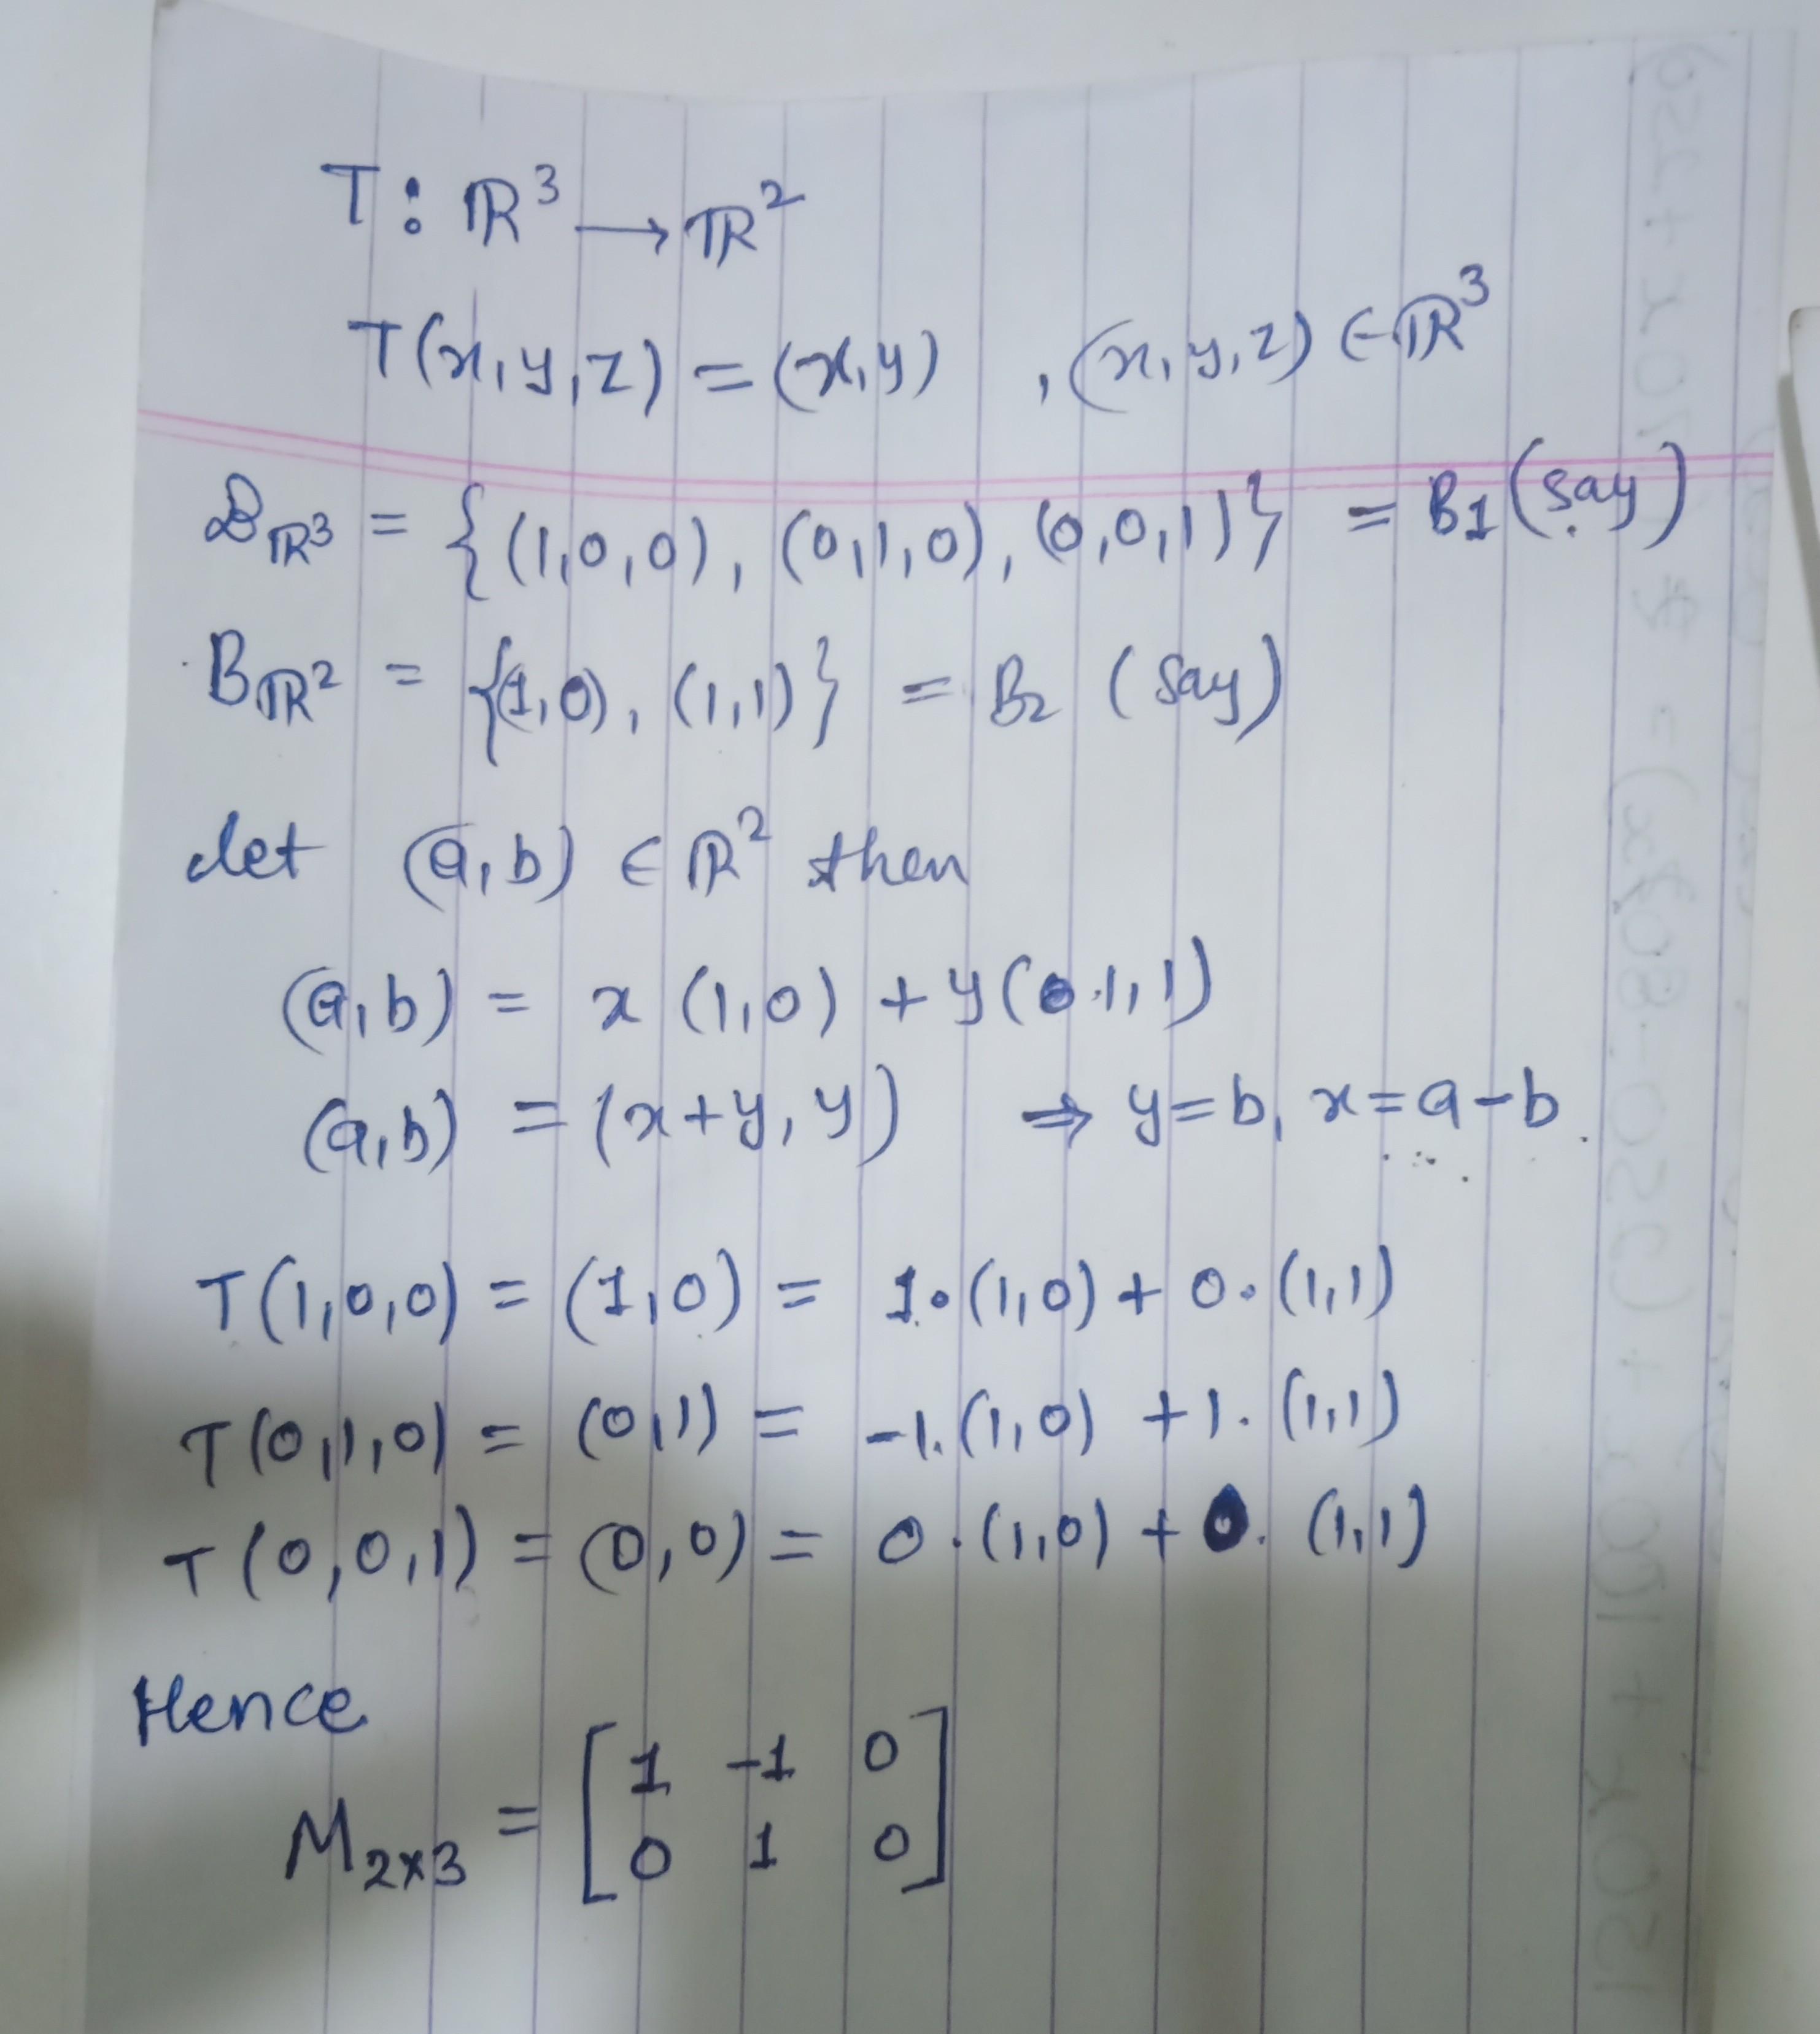 T : ℝ³ → ℝ²
T(x,y,z) = (x,y) , (x,y,z) ∈ ℝ³
B_ℝ³ = {(1,0,0), (0,1,0), (0,0,1)} = B₁ (say)
B_ℝ² = {(1,0), (1,1)} = B₂ (say)
let (a,b) ∈ ℝ² then
(a,b) = x (1,0) + y(1,1)
(a,b) = (x+y, y) ⇒ y=b, x=a-b.
T(1,0,0) = (1,0) = 1.(1,0) + 0.(1,1)
T(0,1,0) = (0,1) = -1.(1,0) +1.(1,1)
T(0,0,1) = (0,0) = 0.(1,0) + 0.(1,1)
Hence
M₂ₓ₃ = [1 -1 0
0 1 0]